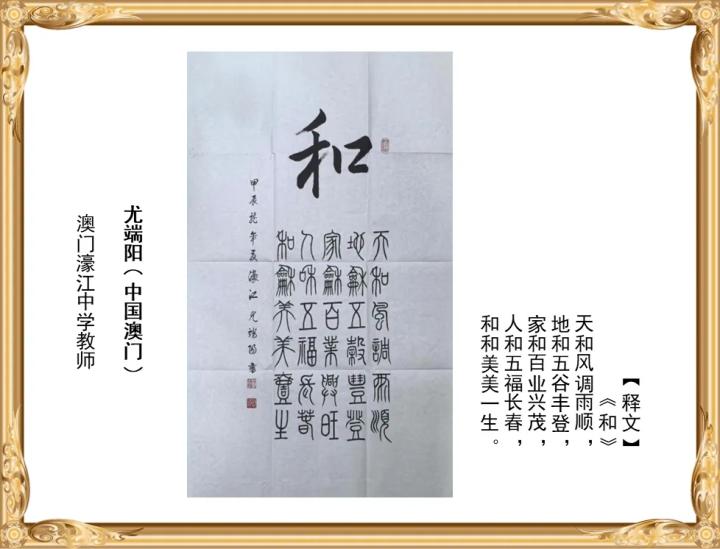 【释文】
《和》
天和风调雨顺，
地和五谷丰登，
家和百业兴茂，
人和五福长春，
和和美美一生。
和
天和風調雨順
地龢五穀豐登
家龢百業興旺
人咊五福長春
和龢美美壹生
甲辰龙年夏濠江尤端阳書
尤端阳（中国澳门）
澳门濠江中学教师